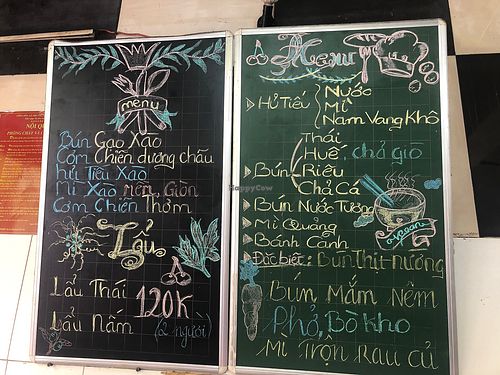 NỘI QUY
menu
Bún Gạo Xào
Cơm Chiên dương châu
hủ Tiếu Xào
Mì Xào mềm, Giòn
Cơm Chiên Thơm
Lẩu
Lẩu Thái 120K
Lẩu nấm (2 người)
Menu
Hủ Tiếu
Nước
Mì
Nam Vang Khô
Bún
Thái
Huế, chả giò
Riêu
Chả Cá
Bún Nước Tương
Mì Quảng
Bánh Canh
Đặc biệt: Bún Thịt Nướng
Bún Mắm Nêm
Phở, Bò kho
Mì Trộn Rau củ
HappyCow